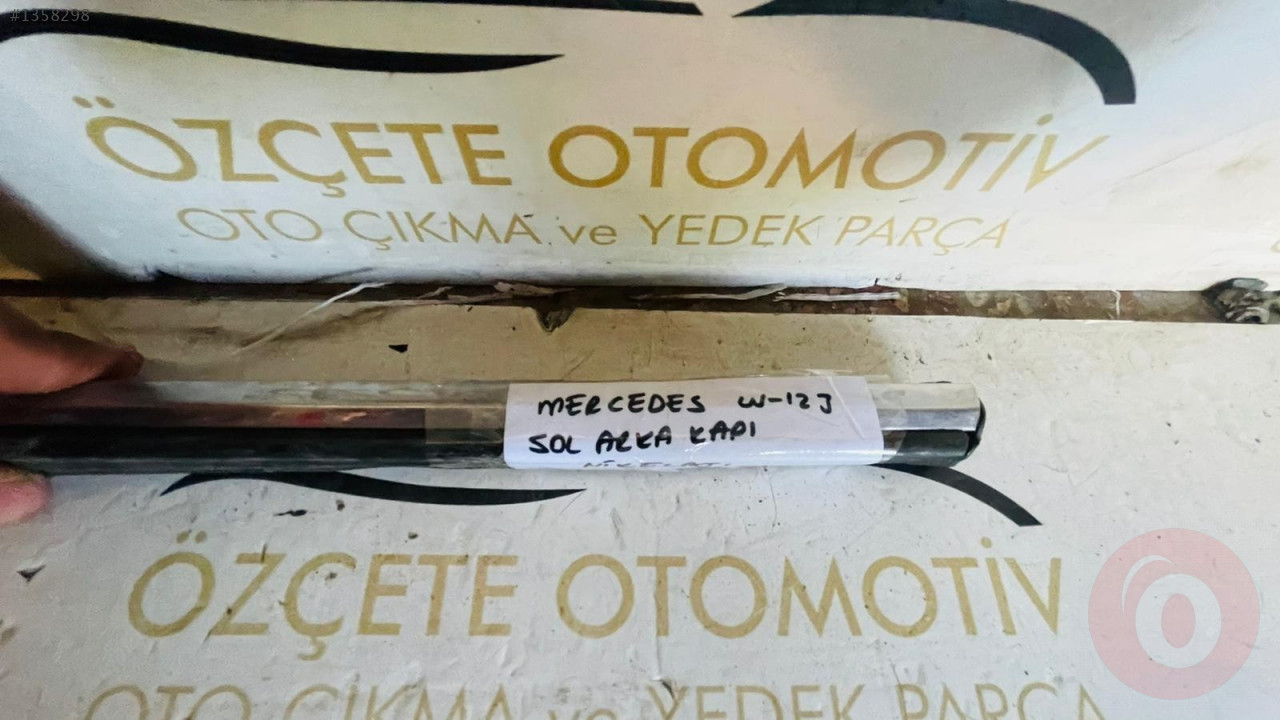 #1358298
ÖZÇETE OTOMOTİV
OTO ÇIKMA ve YEDEK PARÇA
MERCEDES W-123
SOL ARKA KAPI
ÖZÇETE OTOMOTİV
OTO ÇIKMA ve YEDEK PARÇA